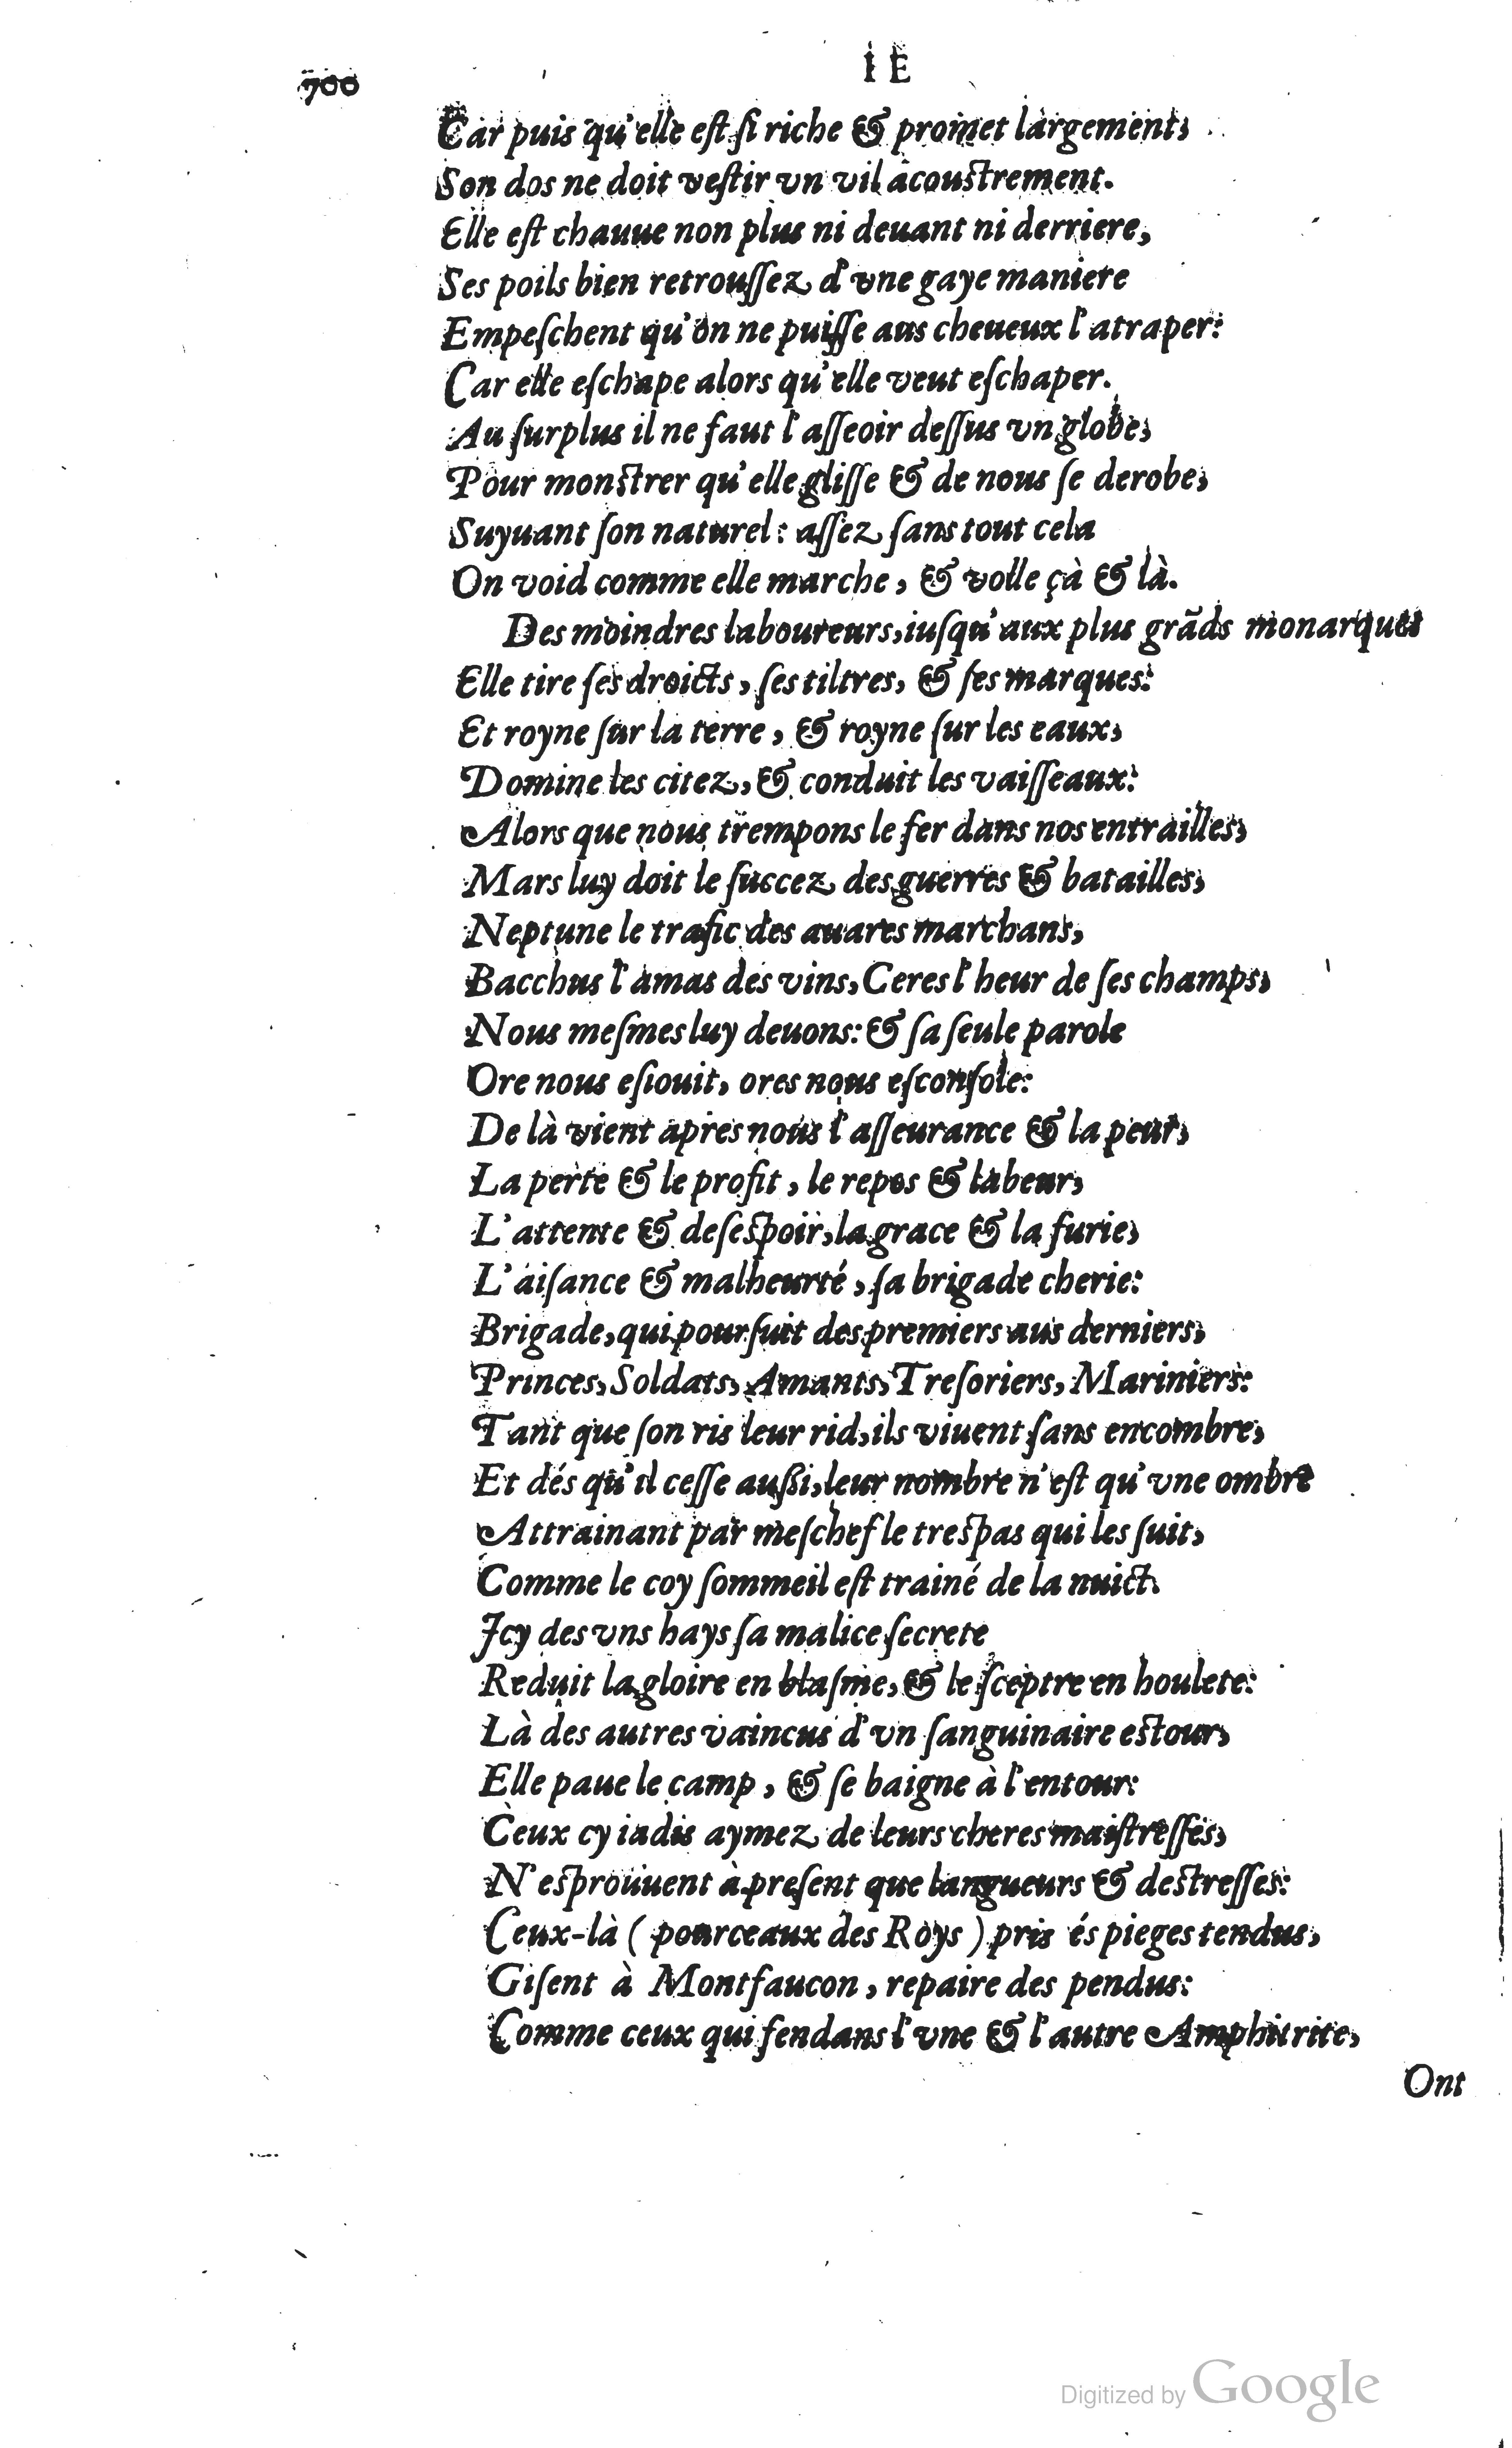 700
IE
Car puis qu'elle eſt ſi riche & promet largement,
Son dos ne doit veſtir vn vil acouſtrement.
Elle eſt chauue non plus ni deuant ni derriere,
Ses poils bien retrouſſez d'vne gaye maniere
Empeſchent qu'on ne puiſſe aus cheueux l'atraper:
Car elle eſchape alors qu'elle veut eſchaper.
Au ſurplus il ne faut l'aſſeoir deſſus vn globe,
Pour monſtrer qu'elle gliſſe & de nous ſe derobe,
Suyuant ſon naturel: aſſez ſans tout cela
On void comme elle marche, & volle çà & là.
Des moindres laboureurs, iuſqu'aux plus grãds monarques
Elle tire ſes droicts, ſes tiltres, & ſes marques:
Et royne ſur la terre, & royne ſur les eaux,
Domine les citez, & conduit les vaiſſeaux:
Alors que nous trempons le fer dans nos entrailles,
Mars luy doit le ſuccez des guerres & batailles,
Neptune le trafic des auares marchans,
Bacchus l'amas des vins, Ceres l'heur de ſes champs,
Nous meſmes luy deuons: & ſa ſeule parole
Ore nous eſiouit, ores nous eſconſole:
De là vient apres nous l'aſſeurance & la peur,
La perte & le profit, le repos & labeur,
L'attente & deſeſpoir, la grace & la furie,
L'aiſance & malheurté, ſa brigade cherie:
Brigade, qui pourſuit des premiers aus derniers,
Princes, Soldats, Amants, Treſoriers, Mariniers:
Tant que ſon ris leur rid, ils viuent ſans encombre,
Et dés qu'il ceſſe auſſi, leur nombre n'eſt qu'vne ombre
Attrainant par meſchef le treſpas qui les ſuit,
Comme le coy ſommeil eſt trainé de la nuict.
Icy des vns hays ſa malice ſecrete
Reduit la gloire en blaſme, & le ſceptre en houlete:
Là des autres vaincus d'vn ſanguinaire eſtour,
Elle paue le camp, & ſe baigne à l'entour:
Ceux cy iadis aymez de leurs cheres maiſtreſſes,
N'eſprouuent à preſent que langueurs & deſtreſſes:
Ceux-là ( pourceaux des Roys ) pris és pieges tendus,
Giſent à Montfaucon, repaire des pendus:
Comme ceux qui fendans l'vne & l'autre Amphitrite,
Ont
Digitized by Google